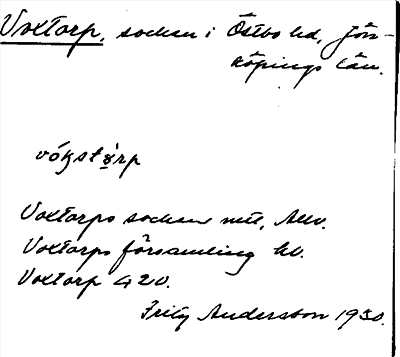 Voxtorp, socken i Östbo hd, Jön-
köpings län.
vókstọ̀rp
Voxtorps socken mtl, Allv.
Voxtorps församling hv.
Voxtorp G2v.
Fritz Andersson 1930.